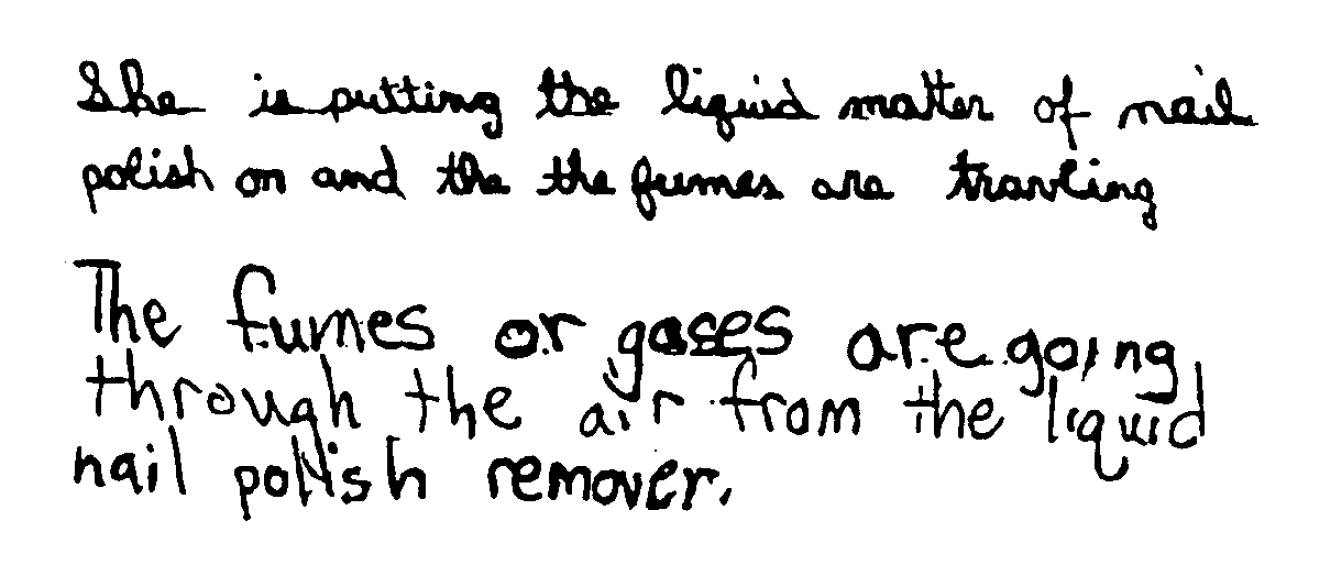 She is putting the liquid matter of nail
polish on and the the fumes are travling
The fumes or gases are going
through the air from the liquid
nail polish remover.